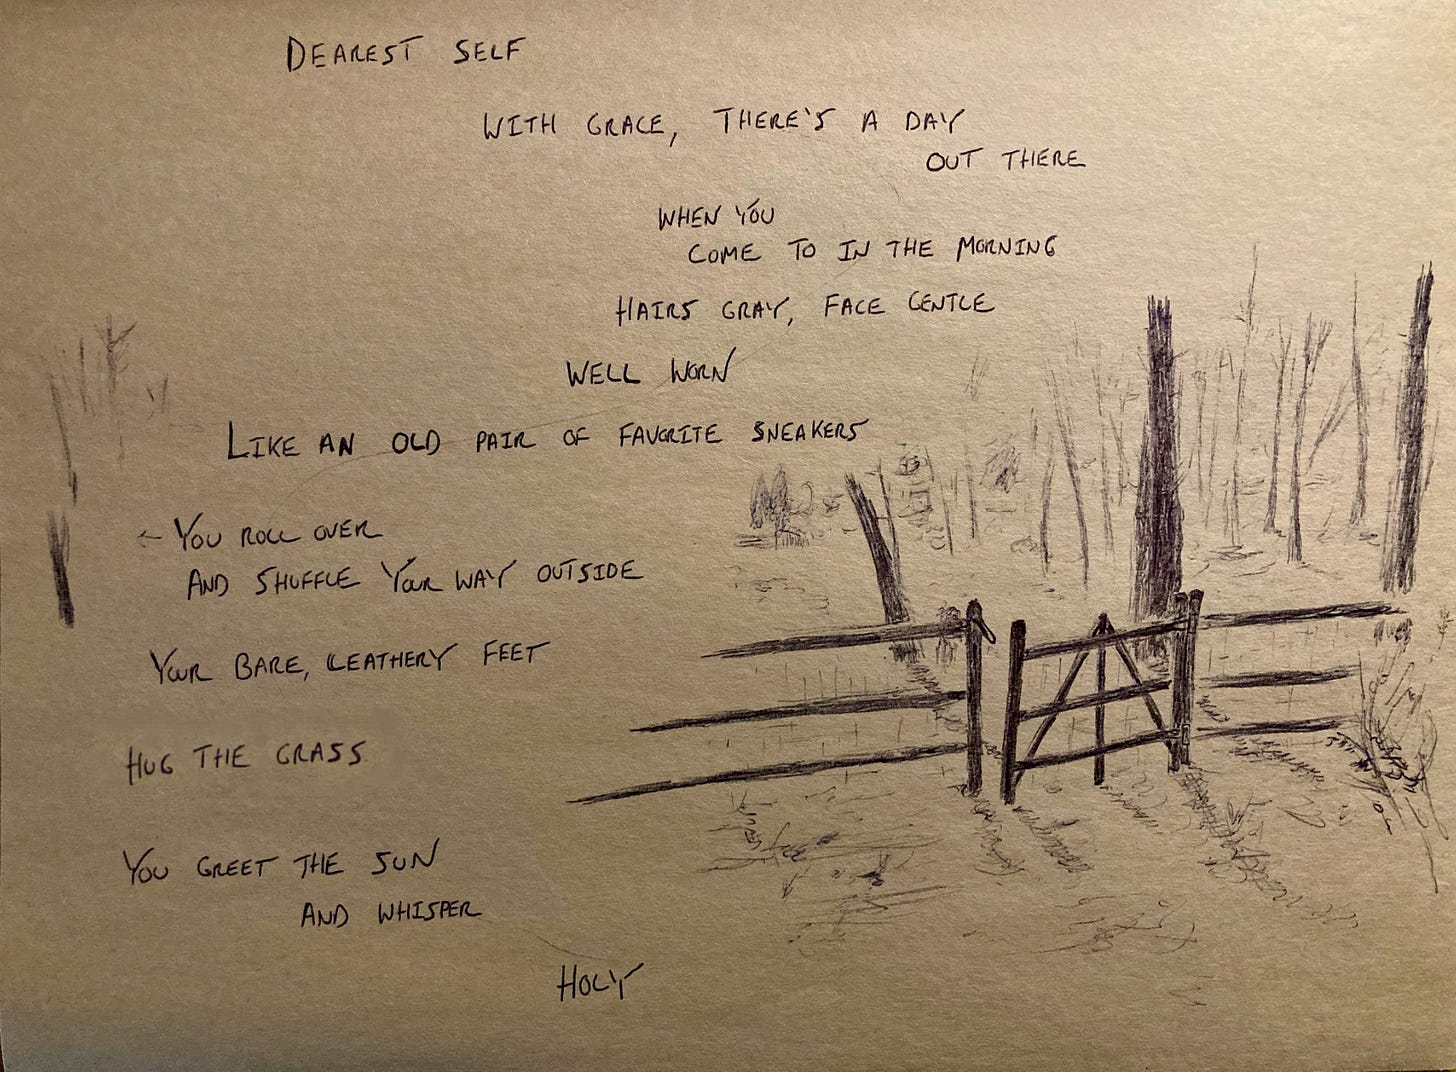 DEAREST SELF
WITH GRACE, THERE'S A DAY
OUT THERE
WHEN YOU
COME TO IN THE MORNING
HAIRS GRAY, FACE GENTLE
WELL WORN
LIKE AN OLD PAIR OF FAVORITE SNEAKERS
YOU ROLL OVER
AND SHUFFLE YOUR WAY OUTSIDE
YOUR BARE, LEATHERY FEET
HUG THE GRASS
YOU GREET THE SUN
AND WHISPER
HOLY